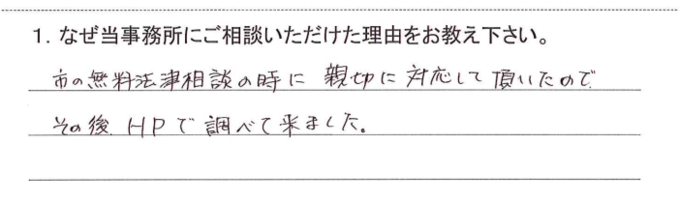 1. なぜ当事務所にご相談いただけた理由をお教え下さい。
市の無料法律相談の時に 親切に対応して頂いたので
その後 HPで調べて来ました。